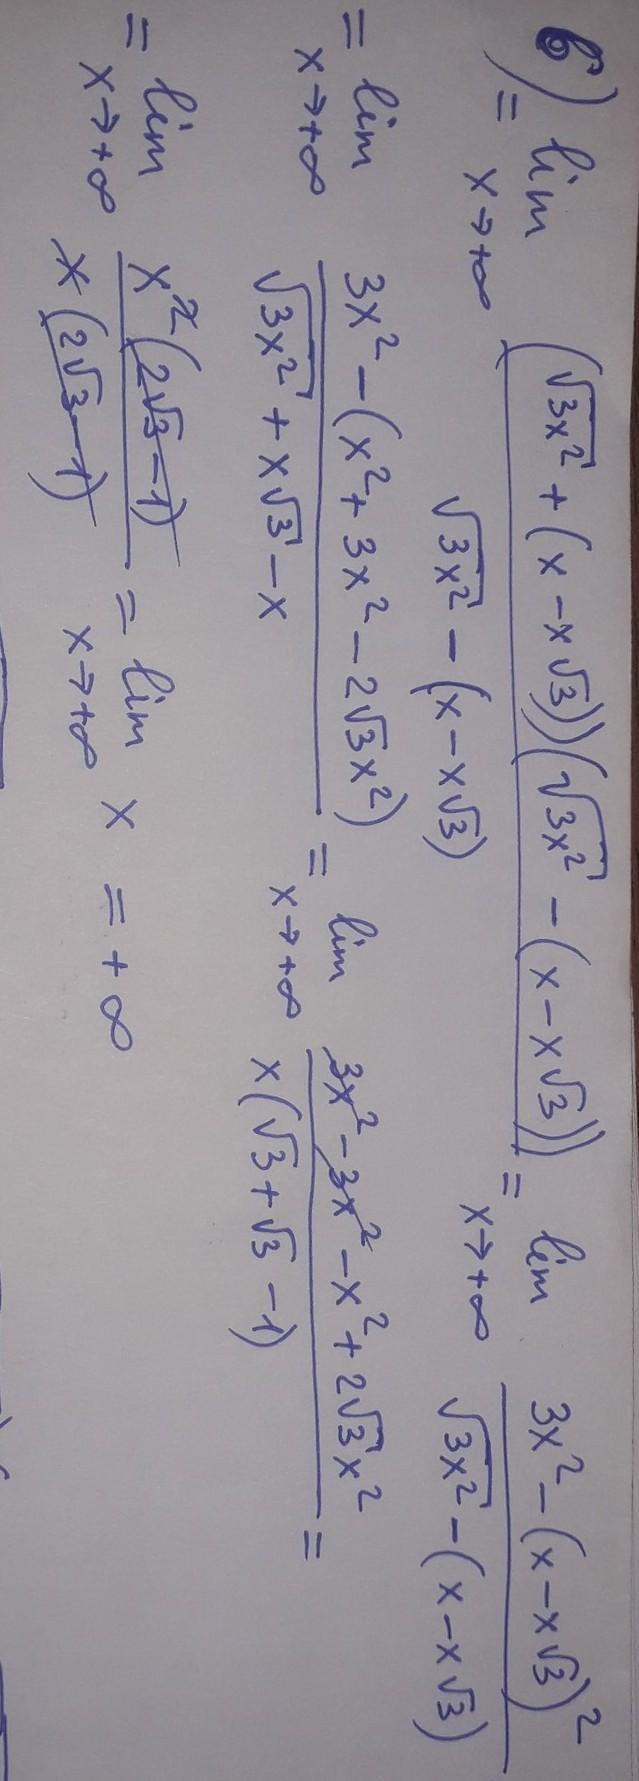 б) = lim x→+∞ (√3x² + (x - x√3))(√3x² - (x - x√3)) / √3x² - (x - x√3) = lim x→+∞ 3x² - (x - x√3)² / √3x² - (x - x√3)
= lim x→+∞ 3x² - (x² + 3x² - 2√3x²) / √3x² + x√3 - x = lim x→+∞ 3x² - 3x² - x² + 2√3x² / x(√3 + √3 - 1) =
= lim x→+∞ x²(2√3 - 1) / x(2√3 - 1) = lim x→+∞ x = +∞